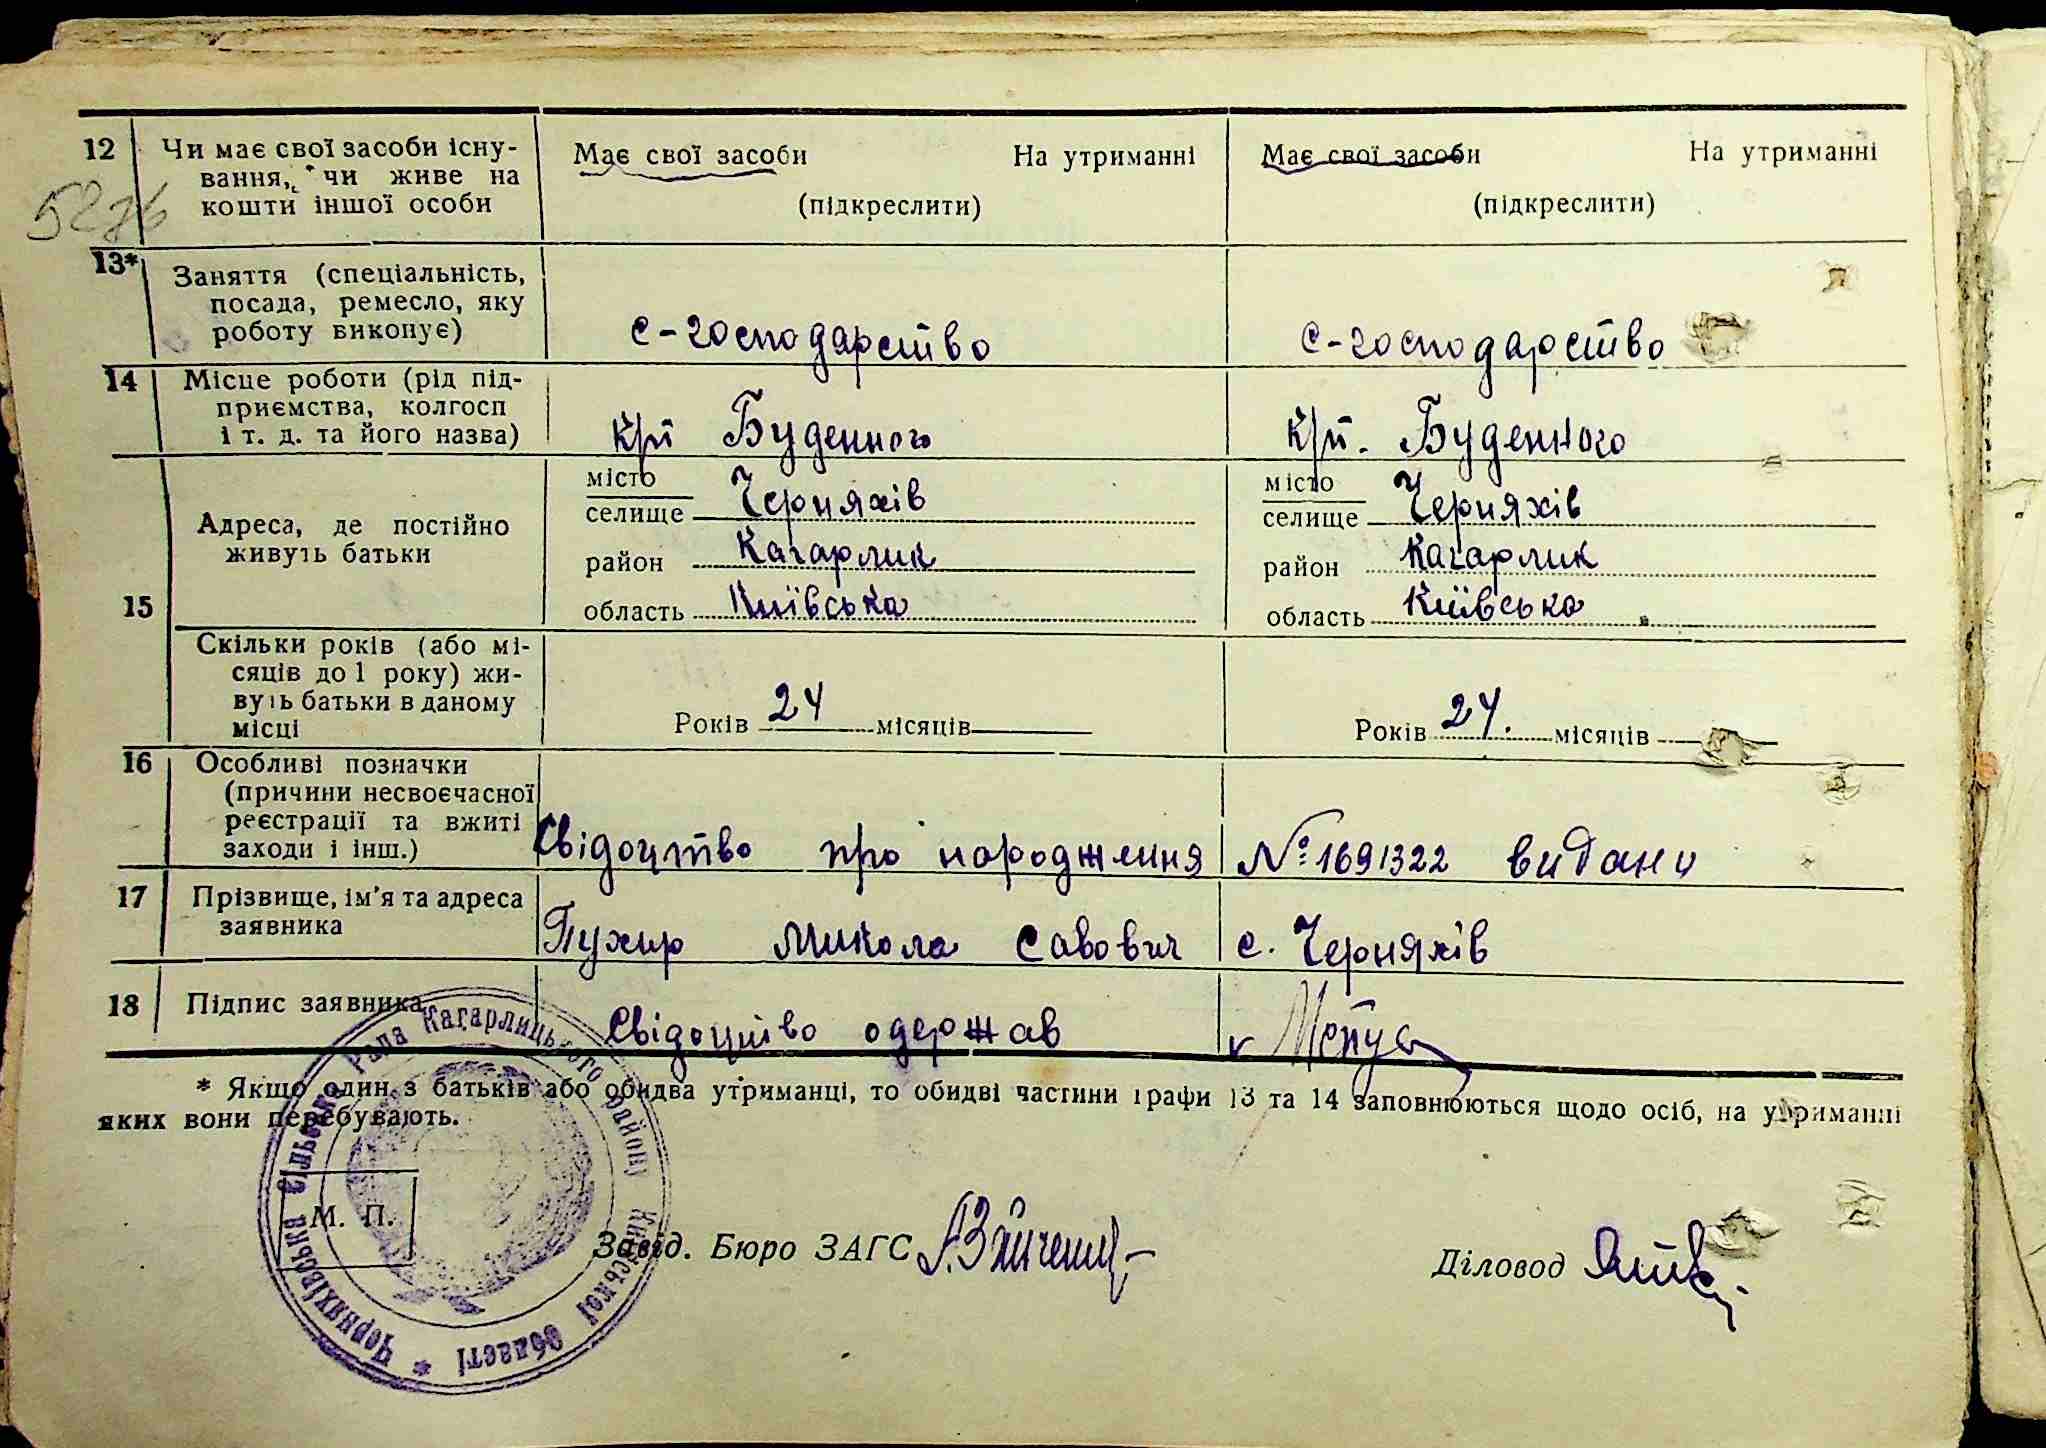 12 Чи має свої засоби існу-
вання, чи живе на
кошти іншої особи
Має свої засоби На утриманні
(підкреслити)
Має свої засоби На утриманні
(підкреслити)
13* Заняття (спеціальність,
посада, ремесло, яку
роботу виконує)
с-господарство
с-господарство
14 Місце роботи (рід під-
приємства, колгосп
і т. д. та його назва)
к/п Буденного
к/п. Буденного
15
Адреса, де постійно
живуть батьки
місто
селище Черняхів
район Кагарлик
область Київська
місто
селище Черняхів
район Кагарлик
область Київська
Скільки років (або мі-
сяців до 1 року) жи-
вуть батьки в даному
місці
Років 24 місяців
Років 24. місяців
16 Особливі позначки
(причини несвоєчасної
реєстрації та вжиті
заходи і інш.)
Свідоцтво про народження № 1691322 видано
17 Прізвище, ім'я та адреса
заявника
Пухир Микола Савович с. Черняхів
18 Підпис заявника
Свідоцтво одержав
* Якщо один з батьків або обидва утриманці, то обидві частини графи 13 та 14 заповнюються щодо осіб, на утриманні
яких вони перебувають.
М. П.
Завід. Бюро ЗАГС
Діловод
Черняхівська Сільська Рада Кагарлицького району Київської Області *